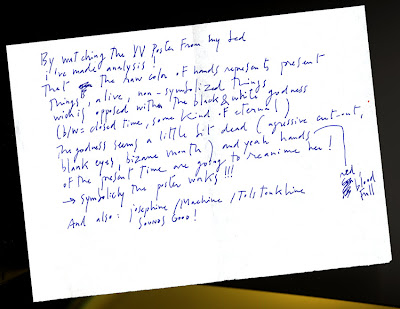 By watching the VV poster from my bed
i've made analysis!
That the raw color of hands represents present
things, alive, non-symbolized things
wich is opposed within the black & white godness
(b/w = closed time, some kind of eternal)
The godness seems a little bit dead (agressive cut-out,
blank eyes, bizarre mouth) and yeah hands
of the present time are going to reanime her!
→ Symbolicly the poster works!!!
And also: Josephine / Machine / Tolstonkhine
Sounds Good!
red
blood
full